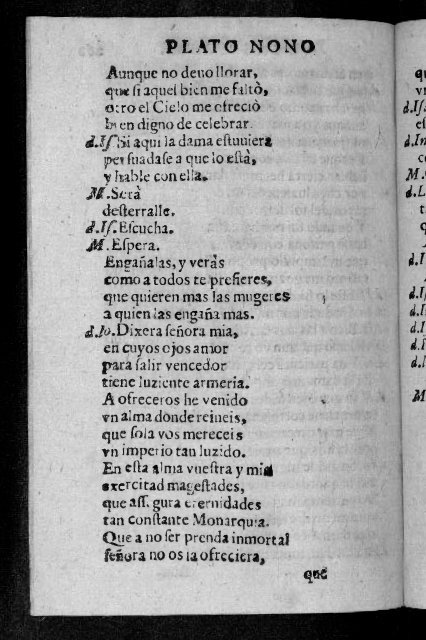 PLATO NONO
Aunque no deuo llorar,
que si aquel bien me faltò,
otro el Cielo me ofreciò
bien digno de celebrar.
d.Is. Si aqui la dama estuuiera
persuadase a que lo està,
y hable con ella.
M. Serà
desterralle.
d.Is. Escucha.
M. Espera.
Engañalas, y veràs
como a todos te prefieres,
que quieren mas las mugeres
a quien las engaña mas.
d.Io. Dixera señora mia,
en cuyos ojos amor
para salir vencedor
tiene luziente armeria.
A ofreceros he venido
vn alma donde reineis,
que sola vos mereceis
vn imperio tan luzido.
En esta alma vuestra y mia
exercitad magestades,
que assegura eternidades
tan constante Monarquia.
Que a no ser prenda inmortal
señora no os la ofreciera,
que